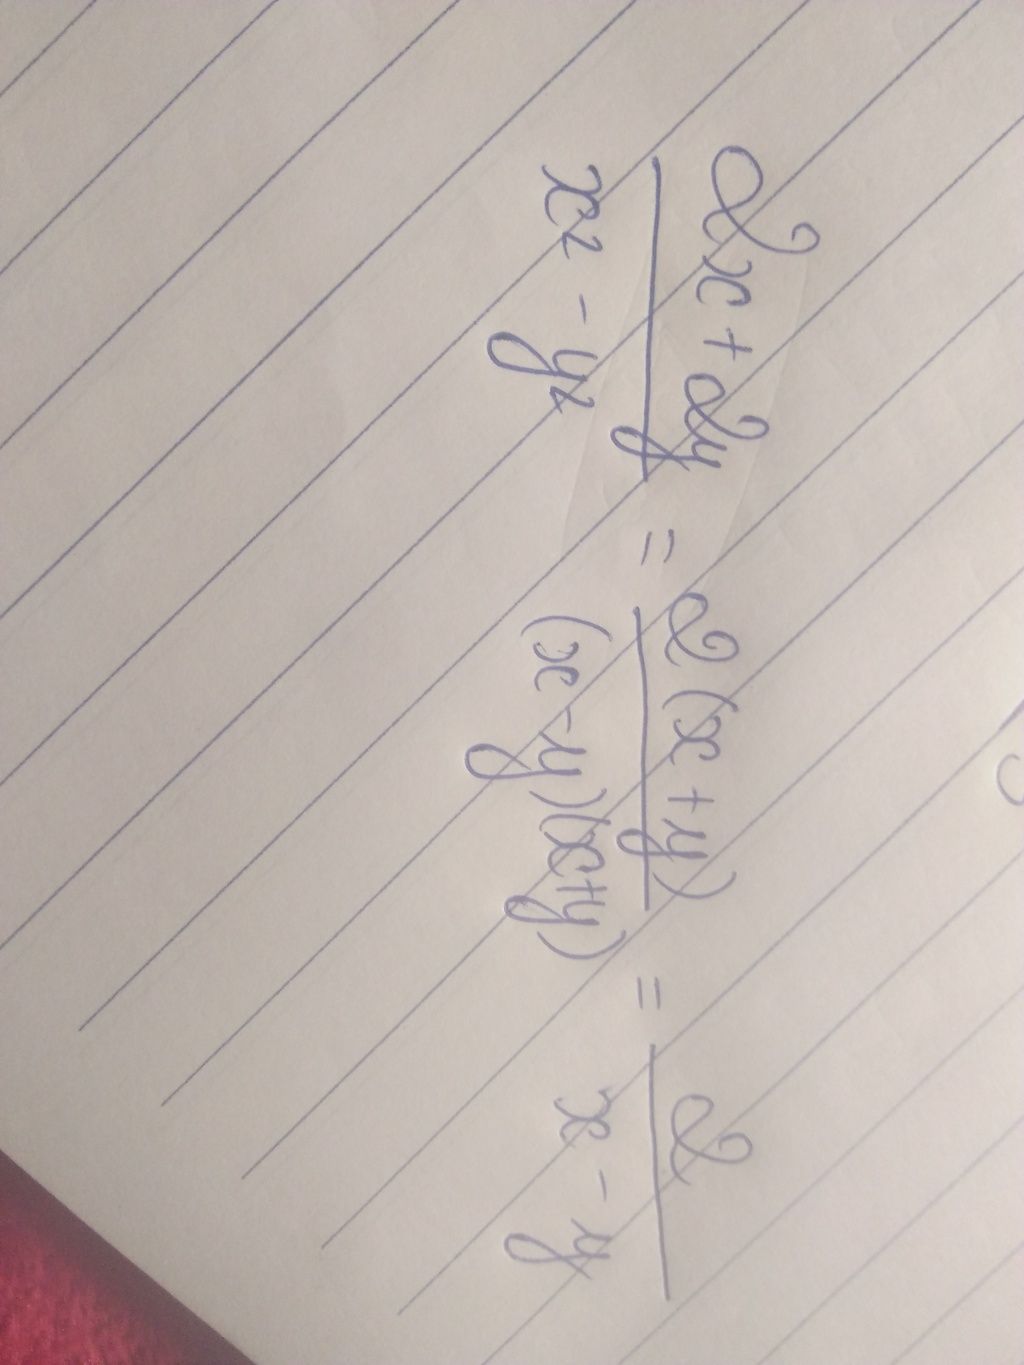 2x + 2y / x² - y² = 2(x + y) / (x - y)(x+y) = 2 / x - y